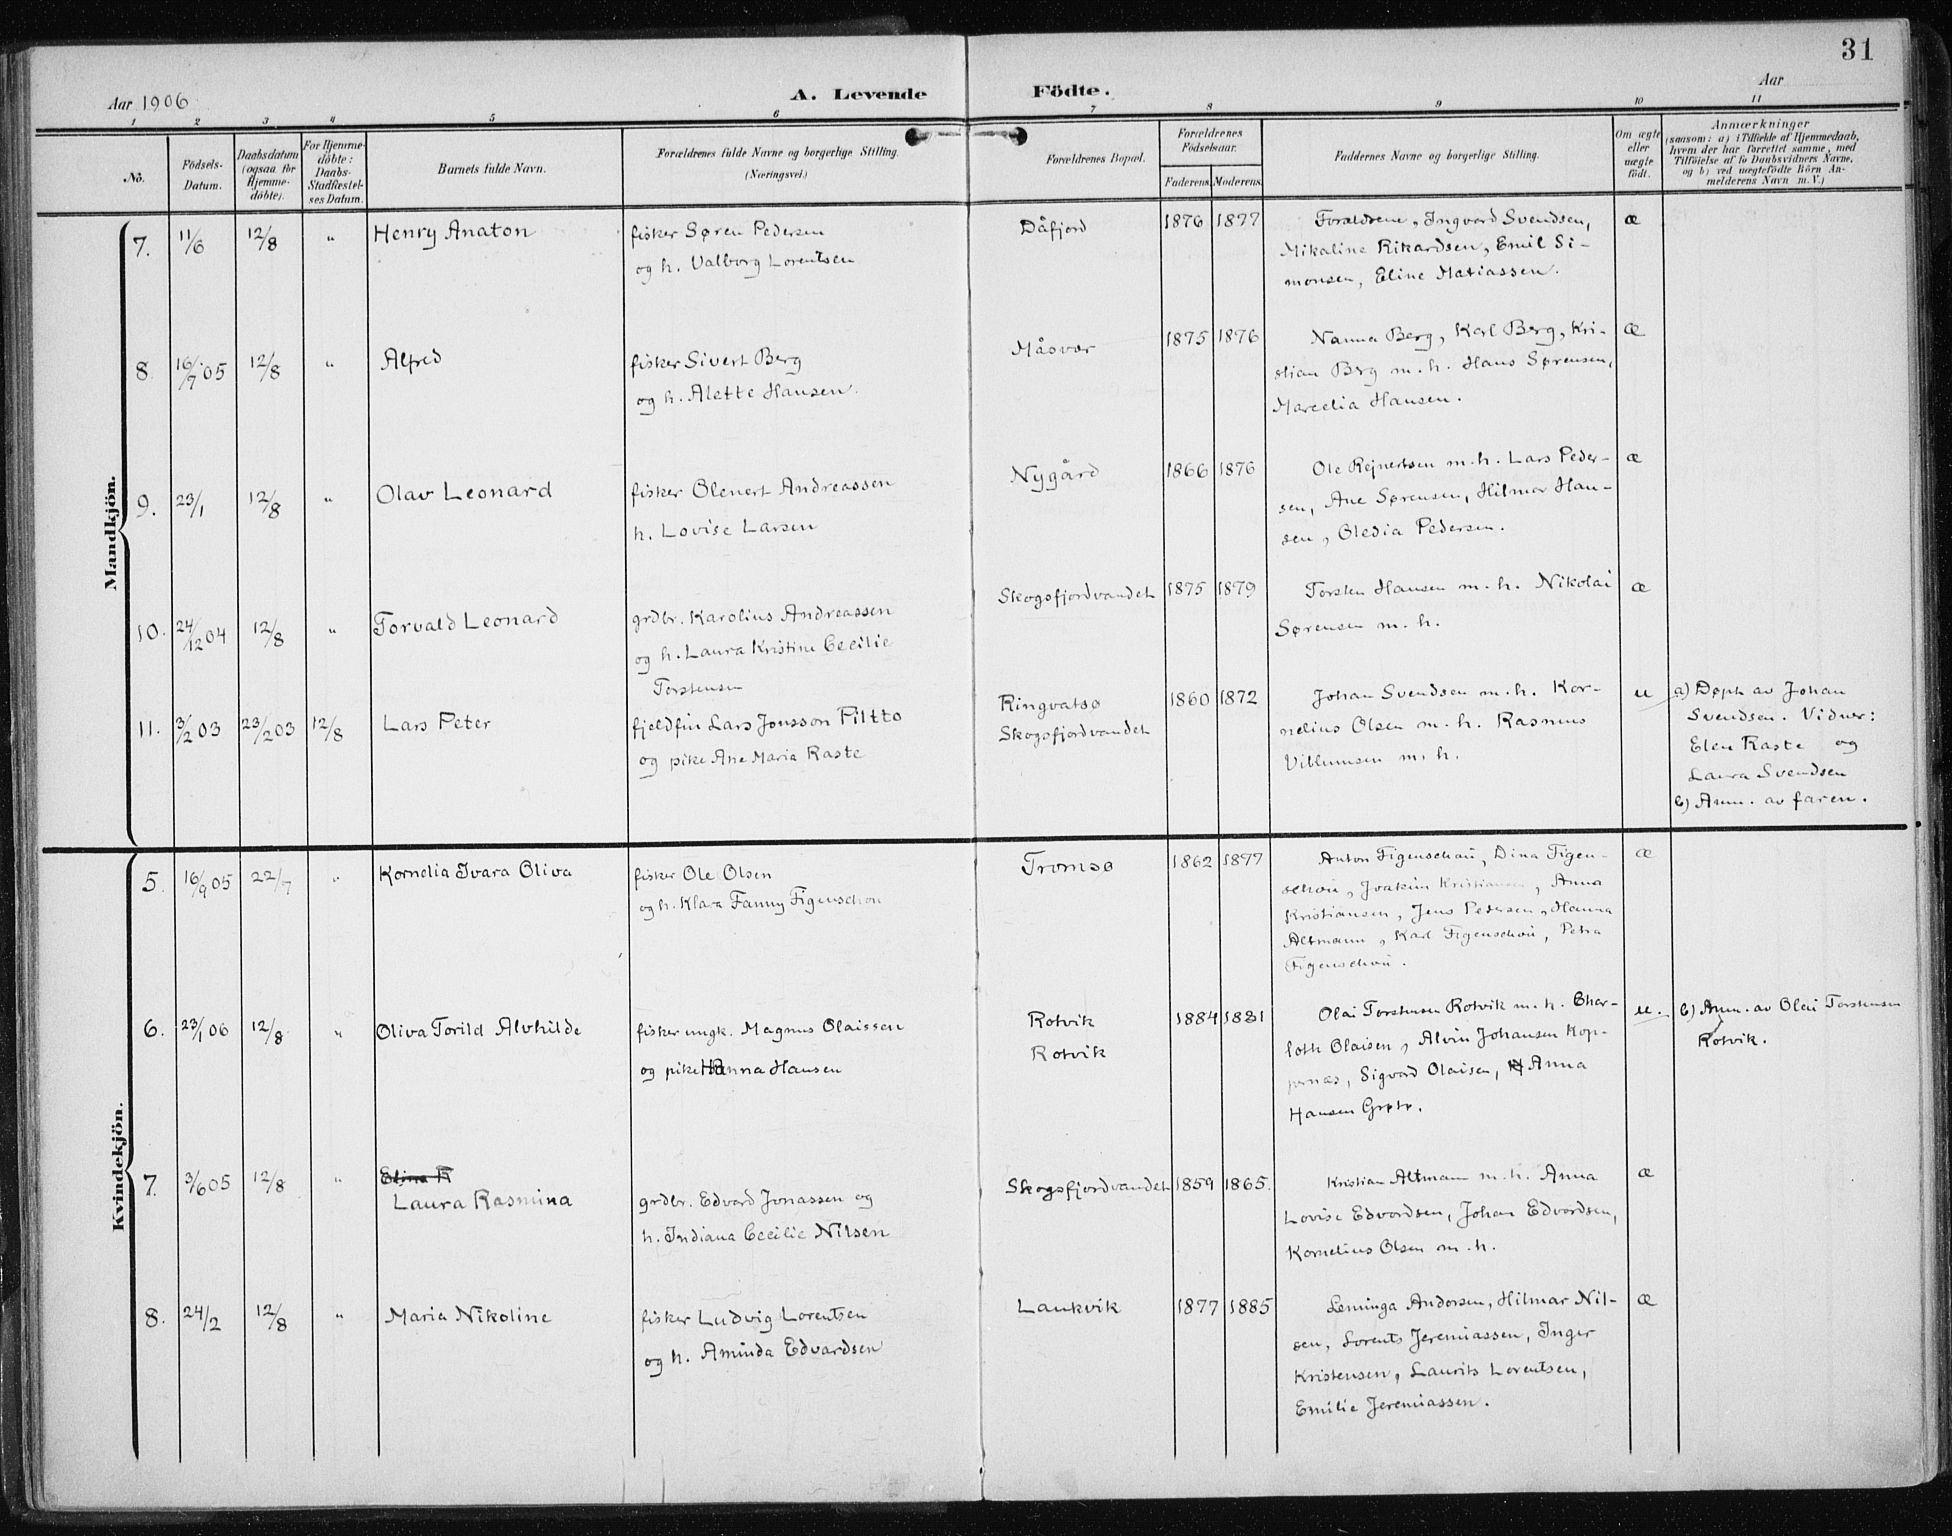 31
Aar 1906
A. Levende Födte.
Aar
1 2 3 4 5 6 7 8 9 10 11
No.
Födsels-
Datum.
Daabsdatum
(ogsaa for
Hjemme-
döbte).
For Hjemme-
döbte:
Daabs-
Stadfæstel-
ses Datum.
Barnets fulde Navn.
Forældrenes fulde Navne og borgerlige Stilling.
(Næringsvei.)
Forældrenes Bopæl.
Forældrenes
Födselsaar.
Faderens. Moderens.
Faddernes Navne og borgerlige Stilling.
Om ægte
eller
uægte
födt.
Anmærkninger
(saasom: a) i Tilfælde af Hjemmedaab,
hvem der har forrettet samme, med
Tilföielse af to Daabsvidners Navne,
og b) ved uægtefödte Börn An-
melderens Navn m. V.)
Mandkjön.
7. 11/6 12/8 " Henry Anaton
fisker Søren Pedersen
og h. Valborg Lorentsen
Dåfjord 1876 1877
Forældrene, Ingvard Svendsen,
Mikaline Rikardsen, Emil Si-
monsen, Eline Matiassen.
æ
8. 16/7 05 12/8 " Alfred
fisker Sivert Berg
og h. Alette Hansen.
Måsvær 1875 1876
Nanna Berg, Karl Berg, Kri-
stian Berg m. h. Hans Sørensen,
Marcelia Hansen.
æ
9. 23/1 12/8 " Olav Leonard
fisker Olenert Andreassen
h. Lovise Larsen
Nygård 1866 1876
Ole Rejnertsen m. h. Lars Peder-
sen, Ane Sørensen, Hilmar Han-
sen, Oledia Pedersen.
æ
10. 24/12 04 12/8 " Torvald Leonard
grdbr. Karolius Andreassen
og h. Laura Kristine Cecilie
Torstensen
Skogsfjordvandet 1875 1879
Torsten Hansen m. h. Nikolai
Sørensen m. h.
æ
11. 3/2 03 23/2 03 12/8 Lars Peter
fjeldfin Lars Jonsson Piltto
og pike Ane Maria Raste
Ringvatsø
Skogsfjordvandet
1860 1872
Johan Svendsen m. h. Kor-
nelius Olsen m. h. Rasmus
Villumsen m. h.
u
a) Døpt av Johan
Svendsen. Vidner:
Elen Raste og
Laura Svendsen
b) Anm. av faren.
Kvindekjön.
5. 16/9 05 22/7 " Kornelia Ivara Oliva
fisker Ole Olsen
og h. Klara Fanny Figenschou
Tromsø 1862 1877
Anton Figenschou, Dina Figen-
schou, Joakim Kristiansen, Anna
Kristiansen, Jens Pedersen, Hanna
Altmann, Karl Figenschou, Petra
Figenschou.
æ
6. 23/1 06 12/8 " Oliva Torild Alvhilde
fisker ungk. Magnus Olaissen
og pike Hanna Hansen
Rotvik
Rotvik
1884 1881
Olai Torstensen Rotvik m. h. Char-
loth Olaisen, Alvin Johansen Kop-
pernæs, Sigvard Olaisen, Anna
Hansen Grøtø.
u.
b) Anm. av Olai Torstensen
Rotvik.
7. 3/6 05 12/8 " Elina R
Laura Rasmina
grdbr. Edvard Jonassen og
h. Indiana Cecilie Nilsen
Skogsfjordvandet 1859 1865.
Kristian Altmann m. h. Anna
Lovise Edvardsen, Johan Edvardsen,
Kornelius Olsen m. h.
æ
8. 24/2 12/8 " Maria Nikoline
fisker Ludvig Lorentsen
og h. Aminda Edvardsen
Laukvik 1877 1885
Leminga Andorsen, Hilmar Nil-
sen, Lorents Jeremiassen, Inger
Kristensen, Laurits Lorentsen,
Emilie Jeremiassen.
æ